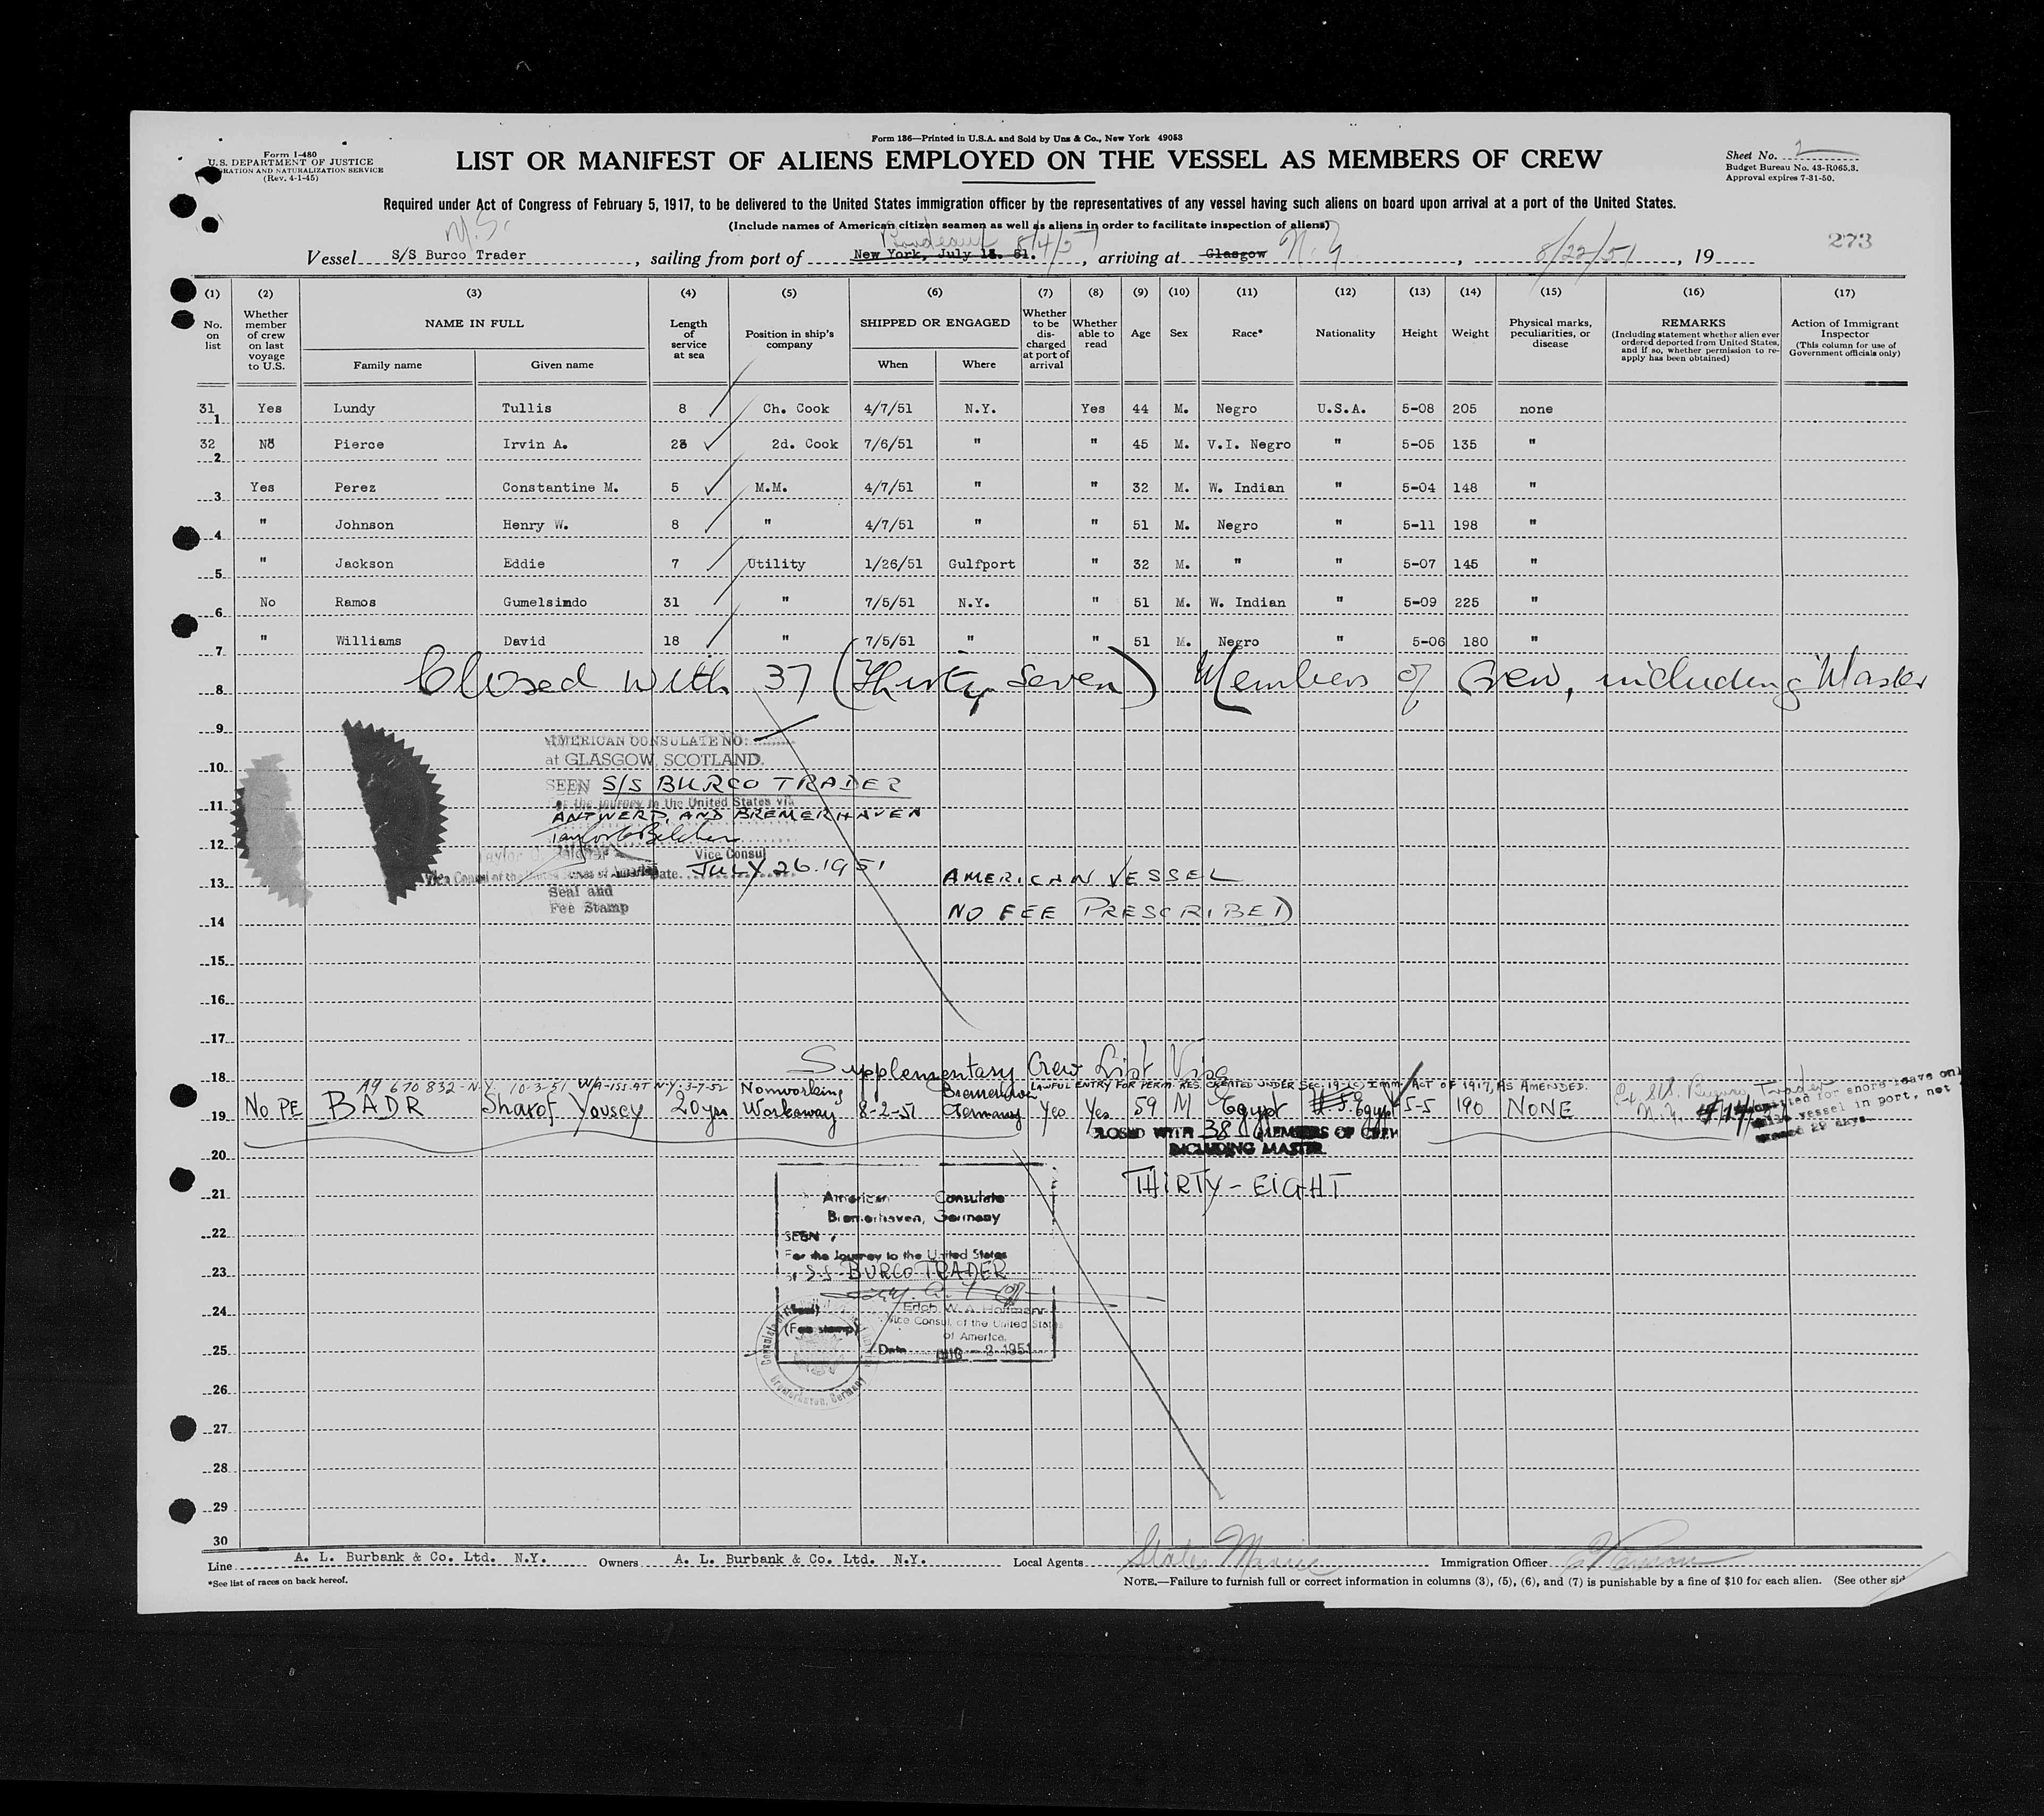 Form 136—Printed in U.S.A. and Sold by Unz & Co., New York 49053
Form I-480
U.S. DEPARTMENT OF JUSTICE
RATION AND NATURALIZATION SERVICE
(Rev. 4-1-45)
LIST OR MANIFEST OF ALIENS EMPLOYED ON THE VESSEL AS MEMBERS OF CREW
Sheet No. 2
Budget Bureau No. 43-R065.3.
Approval expires 7-31-50.
Required under Act of Congress of February 5, 1917, to be delivered to the United States immigration officer by the representatives of any vessel having such aliens on board upon arrival at a port of the United States.
(Include names of American citizen seamen as well as aliens in order to facilitate inspection of aliens)
M.S. Bordeaux 8/4/51
273
Vessel S/S Burco Trader, sailing from port of New York, July 13. 51., arriving at Glasgow N.Y., 8/22/51, 19
(1) (2) (3) (4) (5) (6) (7) (8) (9) (10) (11) (12) (13) (14) (15) (16) (17)
No. on list
Whether member of crew on last voyage to U.S.
NAME IN FULL
Family name
Given name
Length of service at sea
Position in ship's company
SHIPPED OR ENGAGED
When
Where
Whether to be discharged at port of arrival
Whether able to read
Age
Sex
Race*
Nationality
Height
Weight
Physical marks, peculiarities, or disease
REMARKS
(Including statement whether alien ever ordered deported from United States, and if so, whether permission to reapply has been obtained)
Action of Immigrant Inspector
(This column for use of Government officials only)
31 1 Yes Lundy Tullis 8 Ch. Cook 4/7/51 N.Y. Yes 44 M. Negro U.S.A. 5-08 205 none
32 2 No Pierce Irvin A. 28 2d. Cook 7/6/51 " " 45 M. V.I. Negro " 5-05 135 "
3 Yes Perez Constantine M. 5 M.M. 4/7/51 " " 32 M. W. Indian " 5-04 148 "
4 " Johnson Henry W. 8 " 4/7/51 " " 51 M. Negro " 5-11 198 "
5 " Jackson Eddie 7 Utility 1/26/51 Gulfport " 32 M. " " 5-07 145 "
6 No Ramos Gumelsindo 31 " 7/5/51 N.Y. " 51 M. W. Indian " 5-09 225 "
7 " Williams David 18 " 7/5/51 " " 51 M. Negro " 5-06 180 "
8 Closed with 37 (Thirty Seven) Members of Crew, including Master
9
AMERICAN CONSULATE NO:
at GLASGOW, SCOTLAND.
10
SEEN S/S BURCO TRADER
For the journey to the United States via
11
ANTWERP, AND BREMERHAVEN
12
Vice Consul
Vice Consul of the United States of America Date JULY 26.1951
13
AMERICAN VESSEL
Seal and
Fee Stamp
NO FEE PRESCRIBED
14
15
16
17
Supplementary Crew List Visa
18
A9 670 832-N.Y. 10-3-51 W/A-ISS. AT N.Y. 3-7-52
LAWFUL ENTRY FOR PERM. RES. CREATED UNDER SEC. 19 (C) IMM. ACT OF 1917, AS AMENDED.
19 No PE BADR Sharof Yousey 20 yrs Nonworking Workaway 8-2-51 Bremerhaven Germany Yes Yes 59 M Egypt Egypt 5-5 190 NONE
CLOSED WITH 38 MEMBERS OF CREW
INCLUDING MASTER
20
THIRTY-EIGHT
21
American Consulate
Bremerhaven, Germany
22
SEEN
For the Journey to the United States
23
S.S. BURCO TRADER
24
(Seal)
Erich W. A. Hoffmann
(Fee stamp)
Vice Consul of the United States
of America.
25
Date AUG - 2 1951
Bremerhaven, Germany
26
27
28
29
30
Line A. L. Burbank & Co. Ltd. N.Y. Owners A. L. Burbank & Co. Ltd. N.Y. Local Agents States Marine Immigration Officer
*See list of races on back hereof.
NOTE.—Failure to furnish full or correct information in columns (3), (5), (6), and (7) is punishable by a fine of $10 for each alien. (See other sid